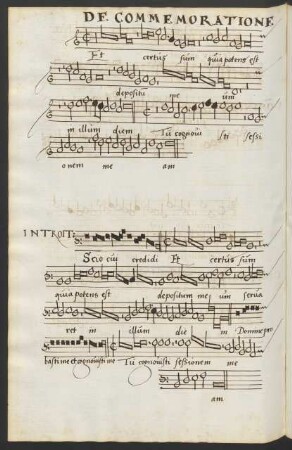 DE COMMEMORATIONE
Et certus sum quia potens est
depositū me um
in illum diem Tu cognoui sti sessi
onem me am
INTROIT:
Scio cui credidi Et certus sum
quia potens est depositum me um serua
ret in illum die m Domine pro
basti me et cognouisti me Tu cognouisti sessionem me
am